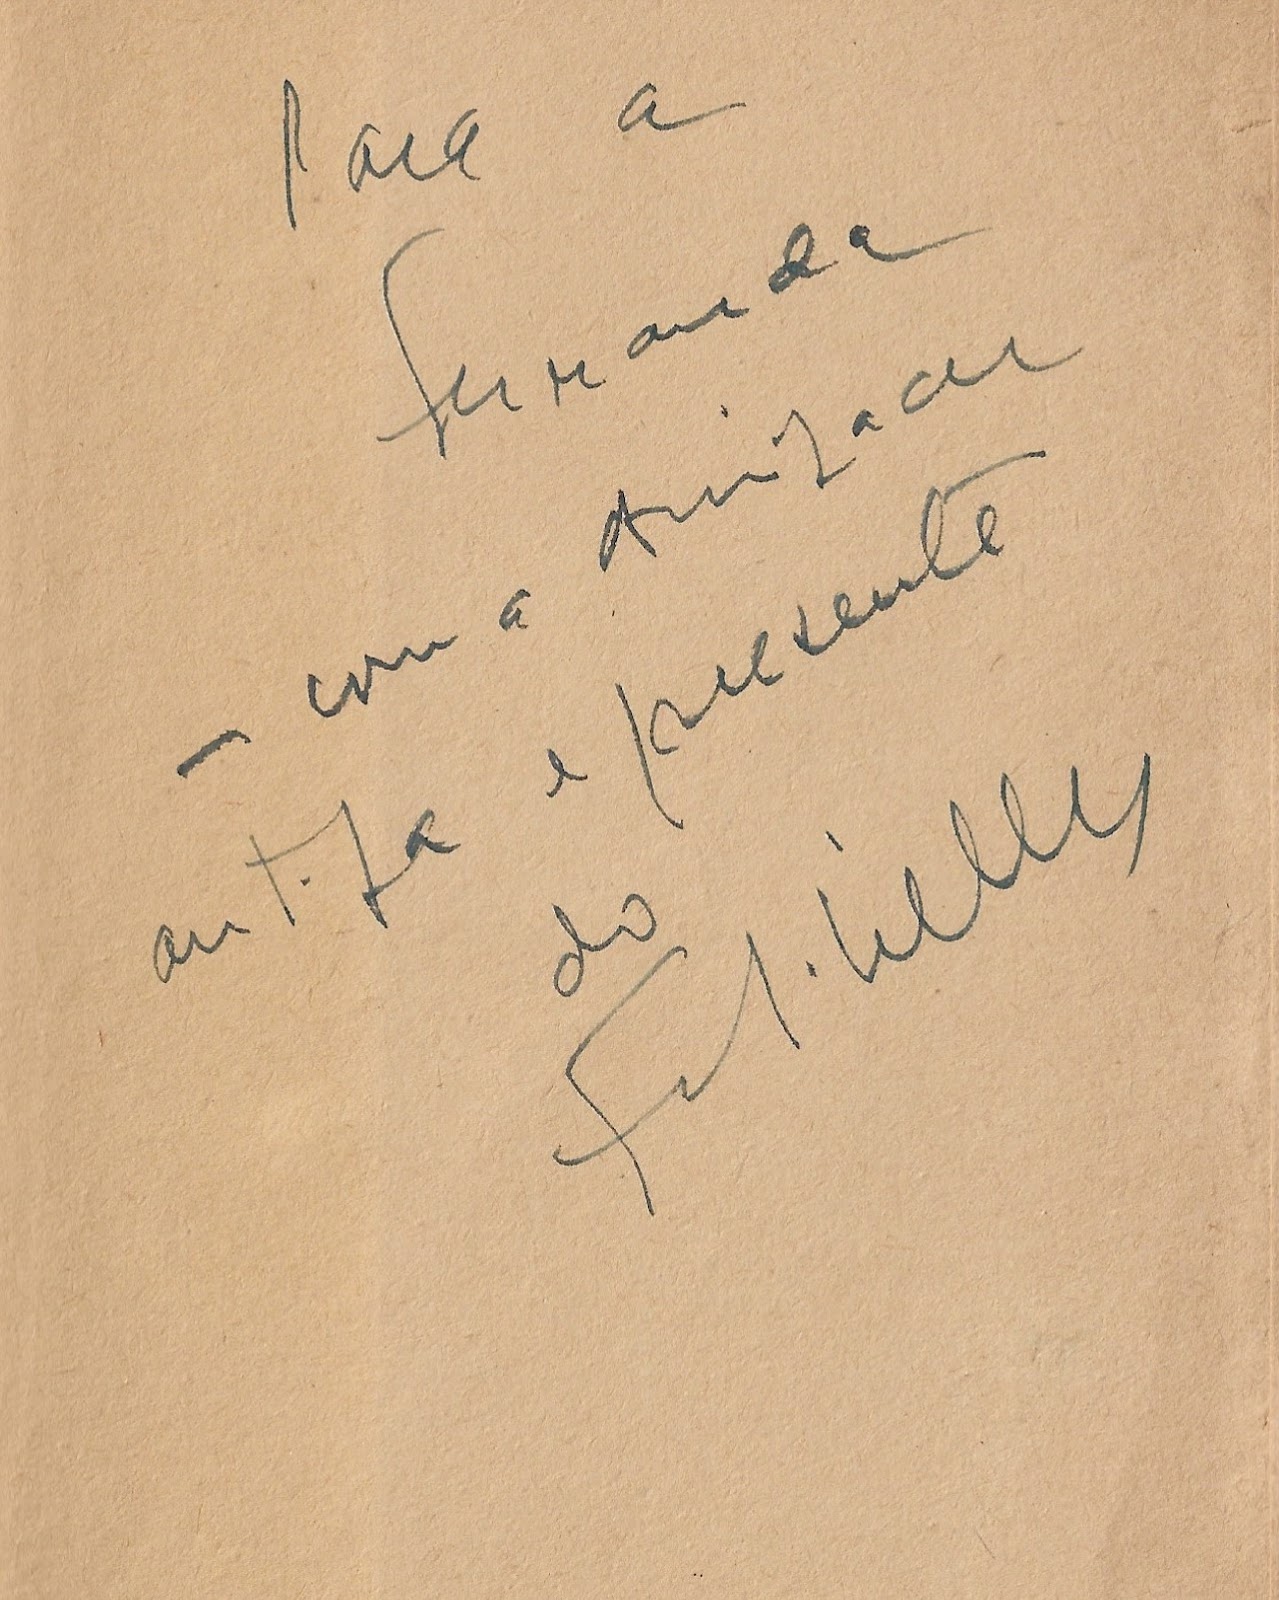 Para a
Fernanda
— com a amizade
antiga e presente
do